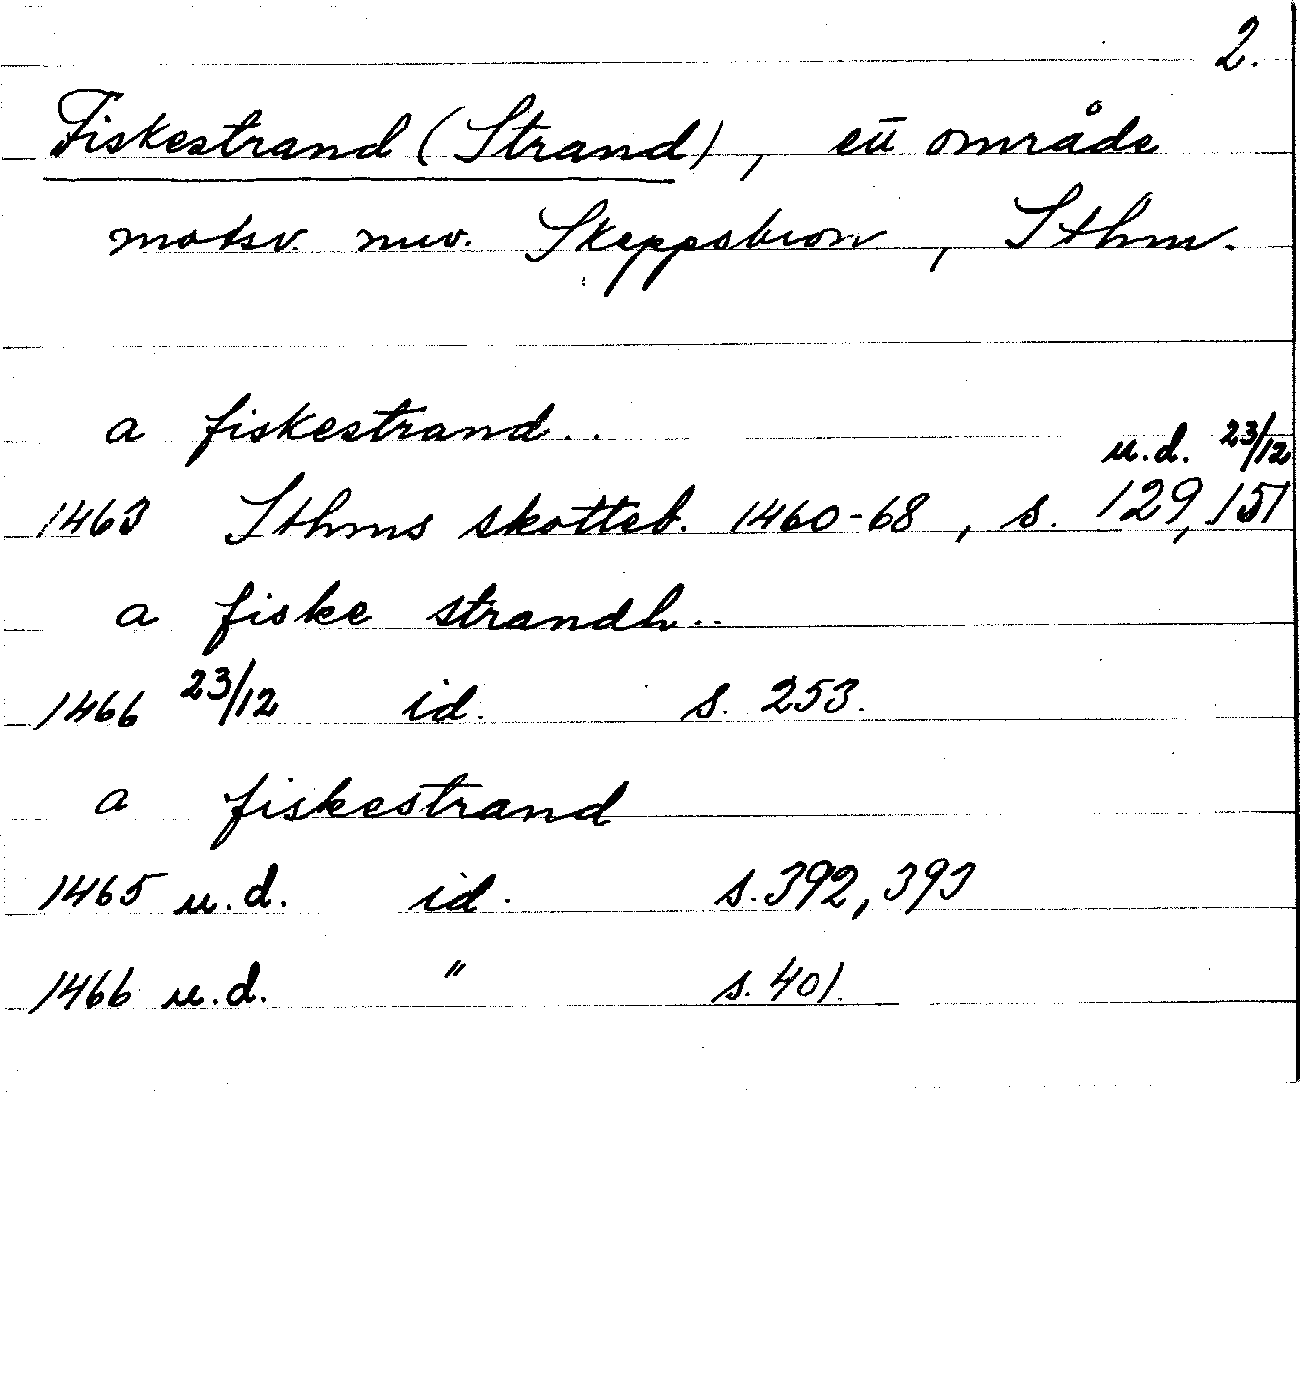 2.
Fiskestrand (Strand), ett område
motsv. nuv. Skeppsbron, Sthm.
a fiskestrand..
u.d. 23/12
1463 Sthms skotteb. 1460-68, s. 129, 151
a fiske strandh..
1466 23/12 id. s. 253.
a fiskestrand
1465 u.d. id. s. 392, 393
1466 u.d. " s. 401.